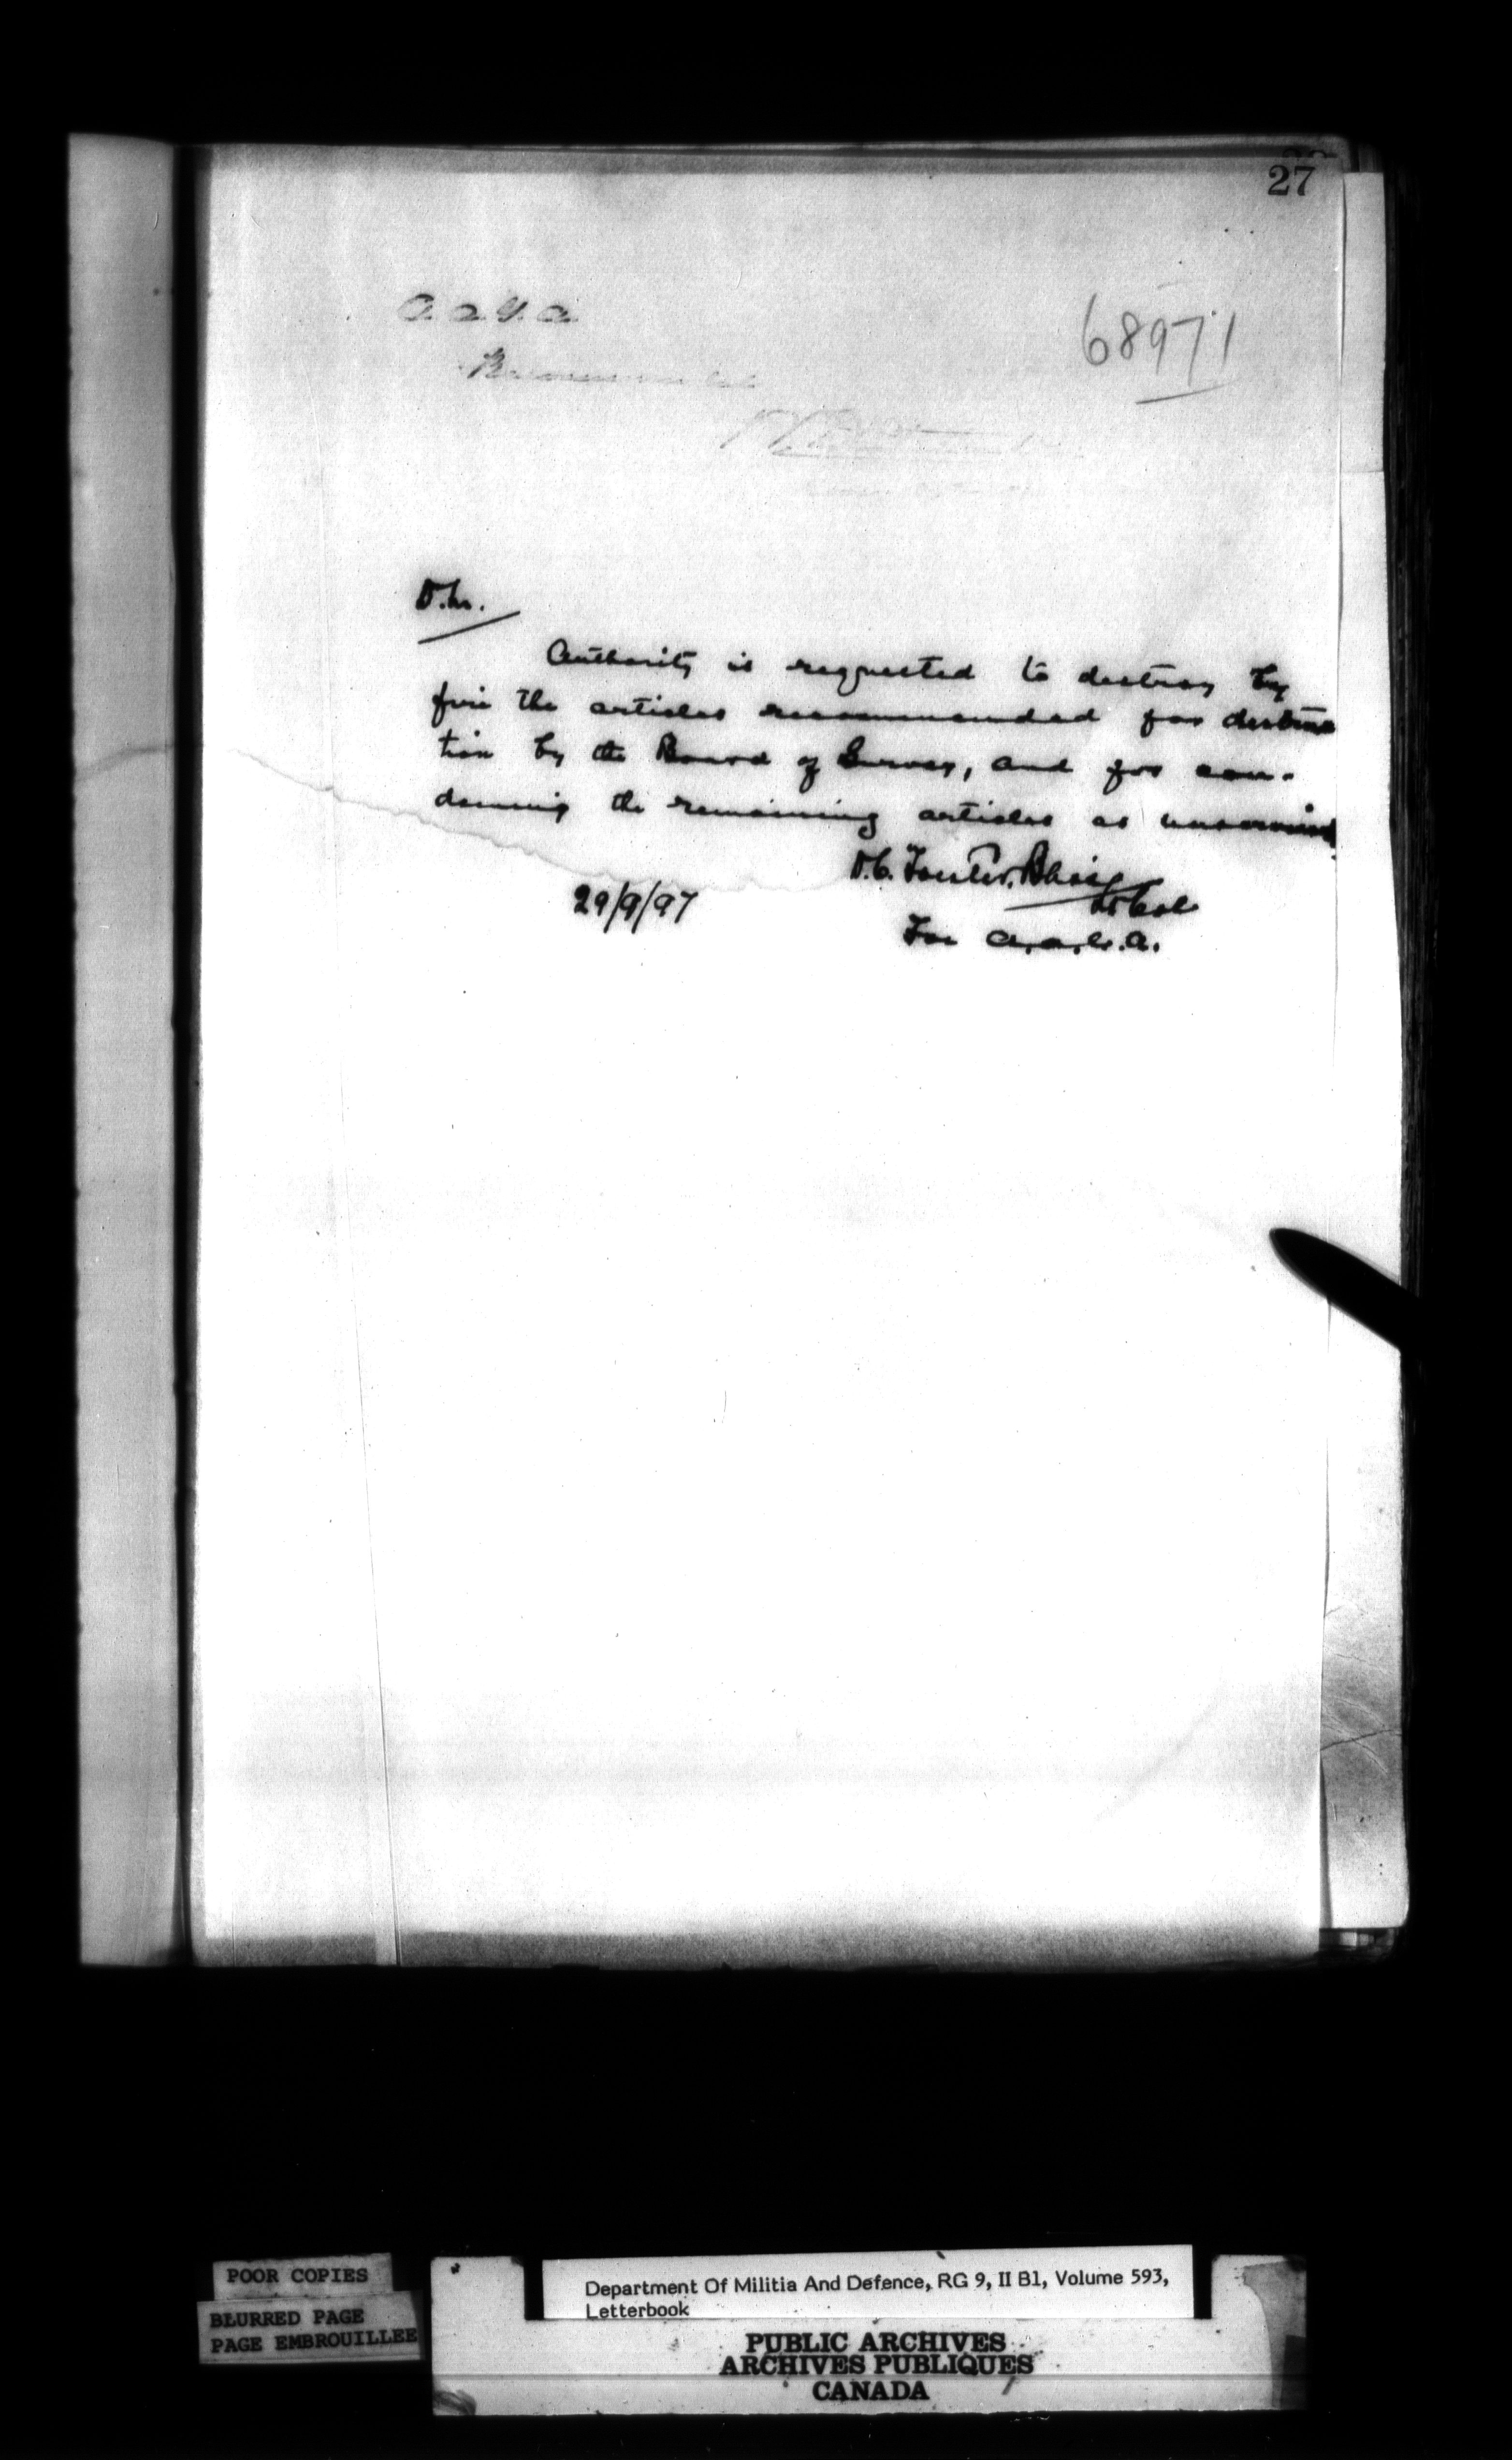 27
68971
A. A. G. A.
D. M.
Authority is requested to destroy by
fire the articles recommended for destruc
tion by the Board of Survey, and for con-
demning the remaining articles as
29/9/97
Lt Col
For A. A. G. A.
POOR COPIES
BLURRED PAGE
PAGE EMBROUILLEE
Department Of Militia And Defence, RG 9, II B1, Volume 593,
Letterbook
PUBLIC ARCHIVES
ARCHIVES PUBLIQUES
CANADA